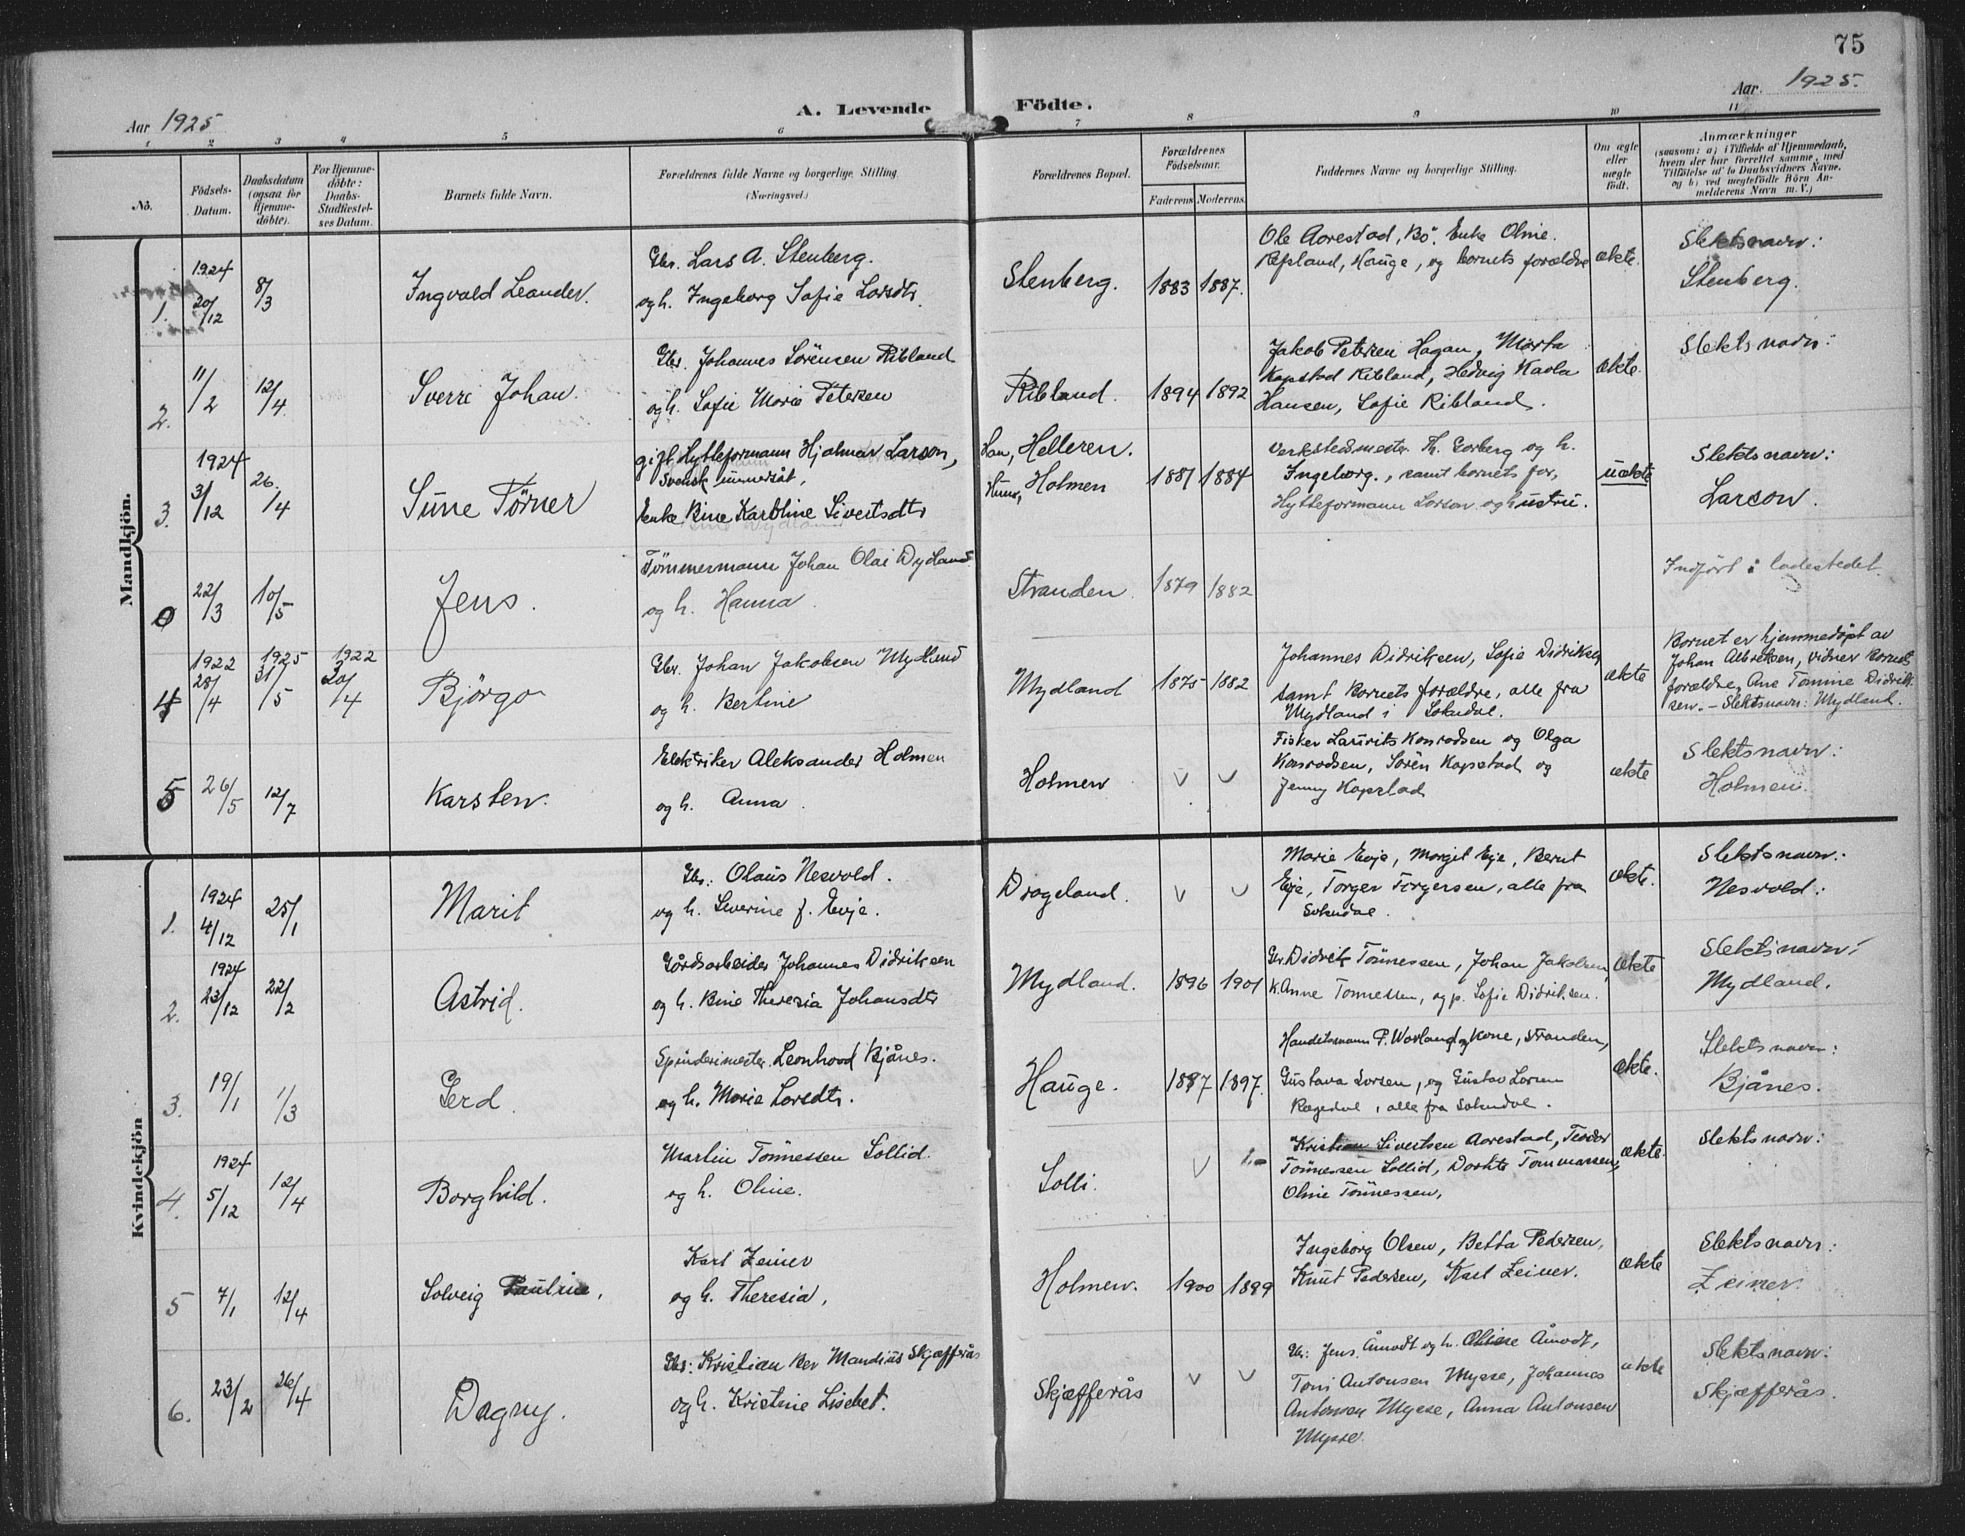 75
Aar 1925
A. Levende Födte.
Aar 1925.
1 2 3 4 5 6 7 8 9 10 11
No.
Födsels-Datum.
Daabsdatum (ogsaa for Hjemme-döbte).
For Hjemme-döbte: Daabs-Stadfæstel-ses Datum.
Barnets fulde Navn.
Forældrenes fulde Navne og borgerlige Stilling. (Næringsvei.)
Forældrenes Bopæl.
Forældrenes Födselsaar.
Faderens. Moderens.
Faddernes Navne og borgerlige Stilling.
Om ægte eller uægte födt.
Anmærkninger
(saasom: a) i Tilfælde af Hjemmedaab, hvem der har forrettet samme, med Tilföielse af to Daabsvidners Navne, og b) ved uægtefödte Börn An-melderens Navn m. V.)
Mandkjön.
1. 1924 20/12 8/3 Ingvald Leander.
Gbr. Lars A. Stenberg.
og h. Ingeborg Sofie Larsdtr.
Stenberg. 1883 1887.
Ole Aarestad, Bö. Enke Oline
Refsland, Hauge, og barnets forældre
ækte.
Slektsnavn:
Stenberg.
2. 11/2 12/4 Sverre Johan.
Gbr. Johannes Sörensen Ribland
og h. Sofie Marie Petersen
Ribland. 1894 1892
Jakob Petersen Hagan, Marta
Kapstad Ribland, Hedvig Karla
Hansen, Sofie Ribland.
ækte.
Slektsnavn:
3. 1924 3/12 26./4 Sune Törner
gift, Hytteformann Hjalmar Larson,
svensk undersåt,
Enke Bine Karoline Sivertsdtr
Han, Helleren.
Hun, Holmen 1881 1884
Verkstedsmester Th. Gorberg og h.
Ingeborg., samt barnets far,
Hytteformann Larson og hustru.
uækte
Slektsnavn:
Larson.
0 22/3 10/5 Jens.
Tømmermann Johan Olai Dydland
og h. Hanna.
Stranden. 1879 1882
Indført i ladestedet.
4 1922 28/4 1925 31/5 1922 30/4 Björgo
Gbr. Johan Jakobsen Mydland
og h. Bertine
Mydland 1875 1882
Johannes Didriksen, Sofie Didriksen
samt Barnets forældre, alle fra
Mydland i Sokndal.
ækte
Barnet er hjemmedøpt av
Johan Albretsen, vidner barnets
forældre, Ane Tomine Didrik-
sen. – Slektsnavn: Mydland.
5 26/5 12/7 Karsten.
Elektriker Aleksander Holmen
og h. Anna.
Holmen
Fisker Laurits Konradsen og Olga
Konradsen, Sören Kapstad og
Jenny Kapstad
ækte
Slektsnavn:
Holmen.
Kvindekjön
1. 1924 4/12 25/1 Marit
Gbr: Olaus Nesvold.
og h. Severine f. Evje.
Drageland.
Marie Evje, Margit Eje, Berut
Eje, Torger Torgersen, alle fra
Sokndal.
ækte.
Slektsnavn:
Nesvold:
2. 1924 23/12 22/2 Astrid.
Gårdsarbeider Johannes Didriksen
og h. Bine Theresia Johansdtr
Mydland. 1896 1901
Gr. Didrik Tönnessen, Johan Jakobsen,
k. Anne Tonnessen, og p. Sofie Didriksen.
ækte
Slektsnavn:
Mydland.
3. 19/1 1/3 Gerd.
Spinderimester Leonhard Bjånes.
og h. Marie Larsdtr.
Hauge. 1887 1897.
Handelsmann P. Vavland og kone, Stranden,
Gustava Larsen, og Gustav Larsen
Rægedal, alle fra Sokndal.
ækte.
Slektsnavn:
Bjånes.
4. 1924 5/12 12/4 Borghild.
Martin Tönnessen Sollid.
og h. Oline.
Solli.
Kristian Sivertsen Aarestad, Teodor
Tönnessen Sollid, Dorthe Tommassen,
Oline Tönnessen,
ækte.
Slektsnavn:
5 7/1 12/4 Solveig Paulrine,
Karl Zeiner
og h. Theresia,
Holmen. 1900 1899
Ingeborg Olsen, Betta Pedersen,
Knut Pedersen, Karl Zeiner.
ækte
Slektsnavn:
Zeiner.
6. 23/2 26/4 Dagny.
Gbr: Kristian Ber Mandius Skjæfferås
og h. Kristine Lisebet.
Skjæfferås
Gbr: Jens Åmodt og h. Åmodt,
Toni Antonsen Mysse, Johannes
Antonsen Mysse, Anna Antonsen
Mysse.
ækte
Slektsnavn:
Skjæfferås.